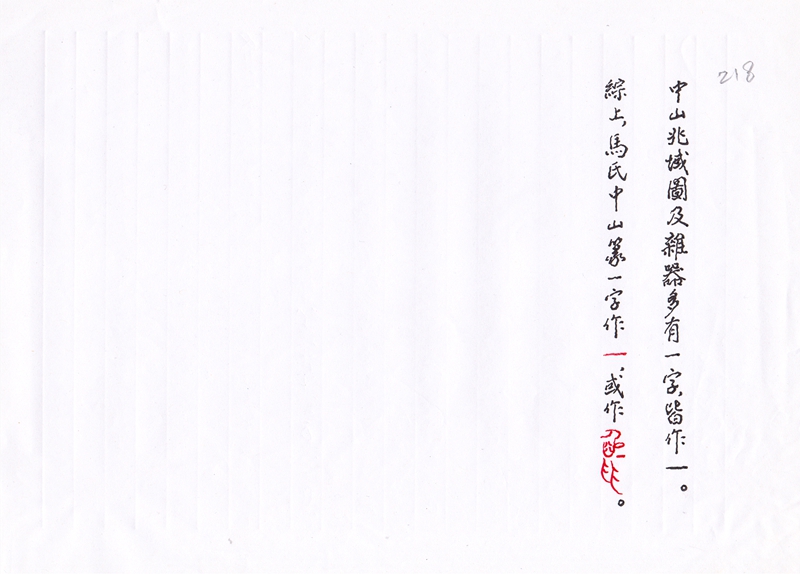 218
中山兆域圖及雜器多有一字,皆作一。
綜上,馬氏中山篆一字作一,或作。